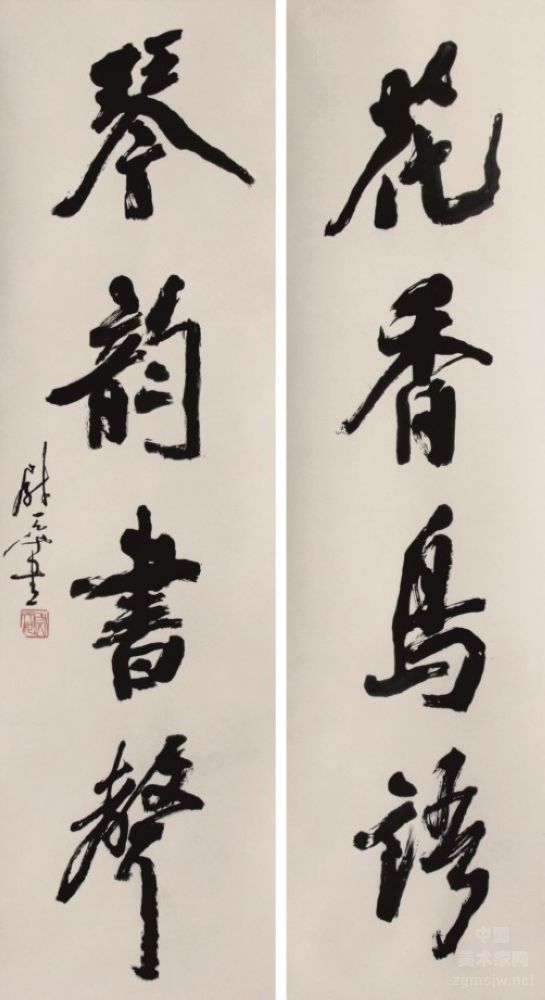 花香鳥語
琴韵書聲
中国
美术家网
zgmsjw.net